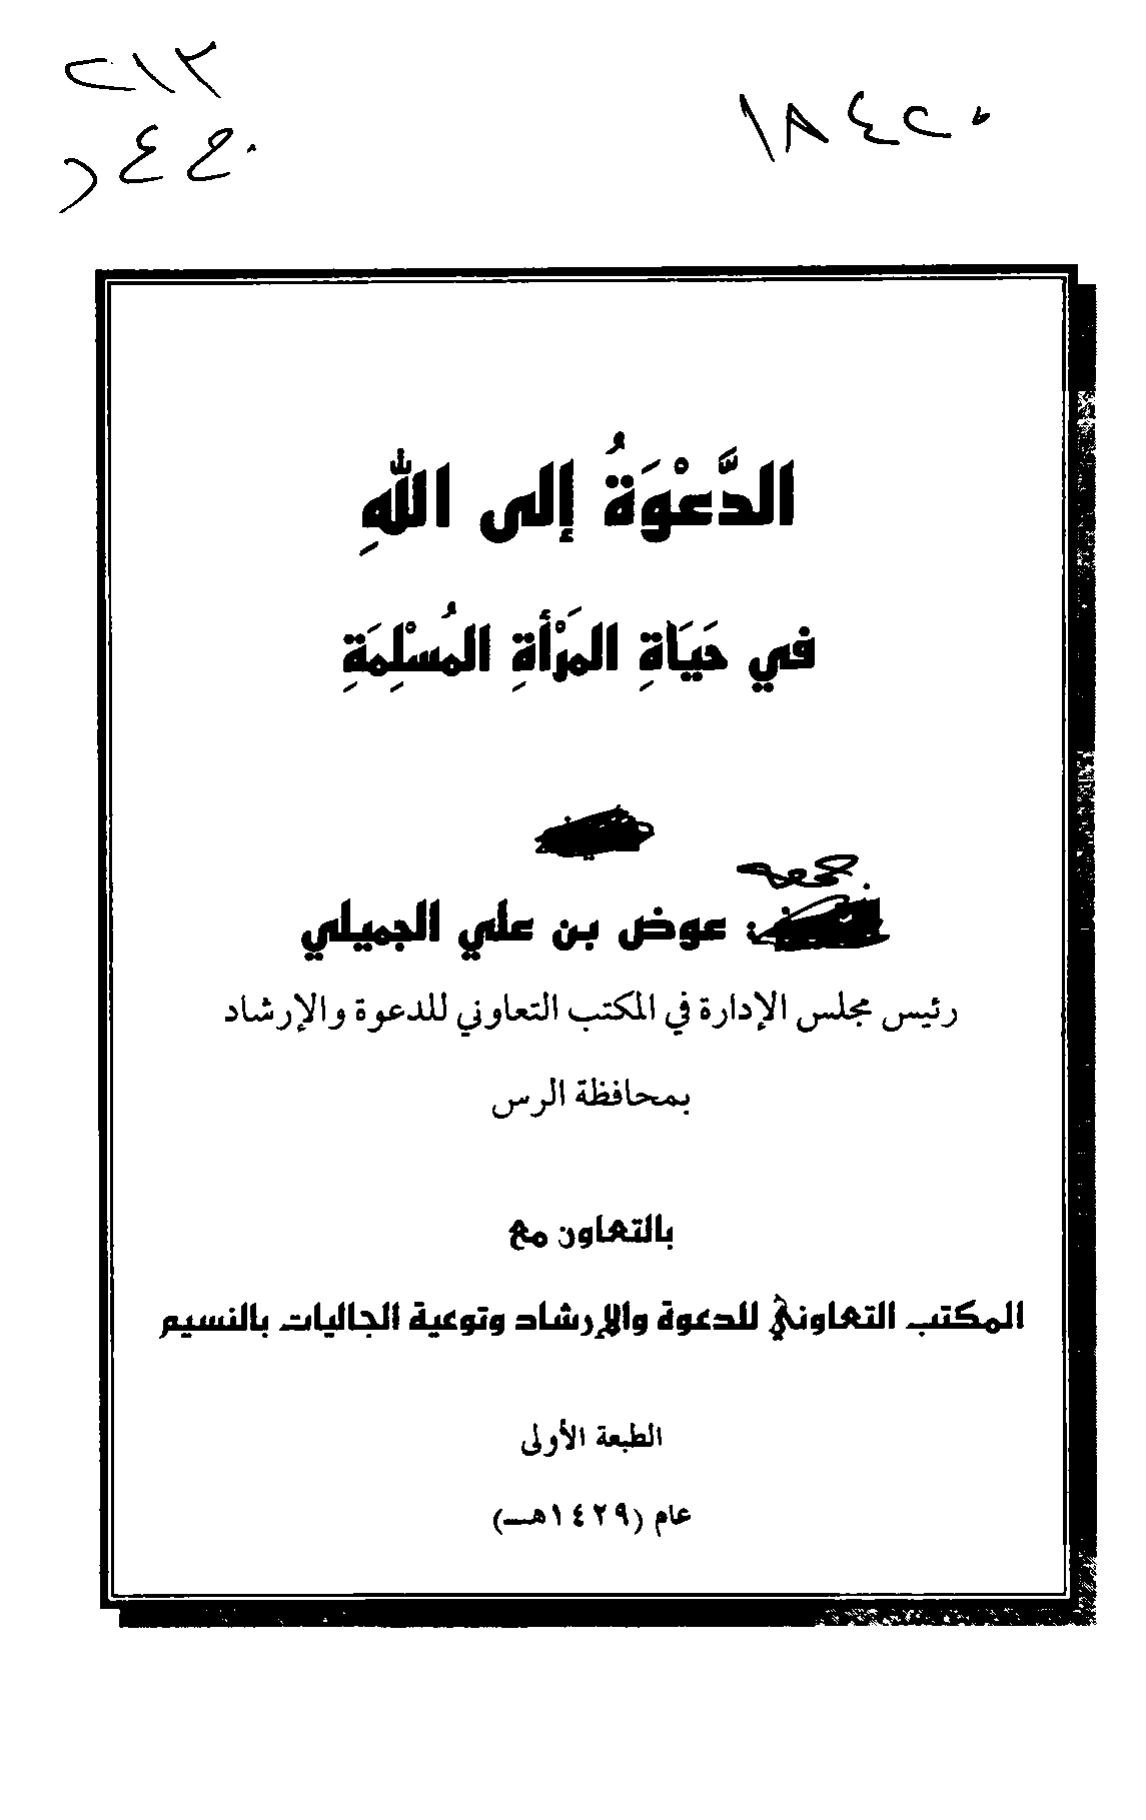 ٢١٣
ج ع د
١٨٤٢٠
الدَّعْوَةُ إلى اللهِ
في حَيَاةِ المَرْأةِ المُسْلِمَةِ
جمعه
: عوض بن علي الجميلي
رئيس مجلس الإدارة في المكتب التعاوني للدعوة والإرشاد
بمحافظة الرس
بالتعاون مع
المكتب التعاوني للدعوة والإرشاد وتوعية الجاليات بالنسيم
الطبعة الأولى
عام (١٤٢٩هـ)